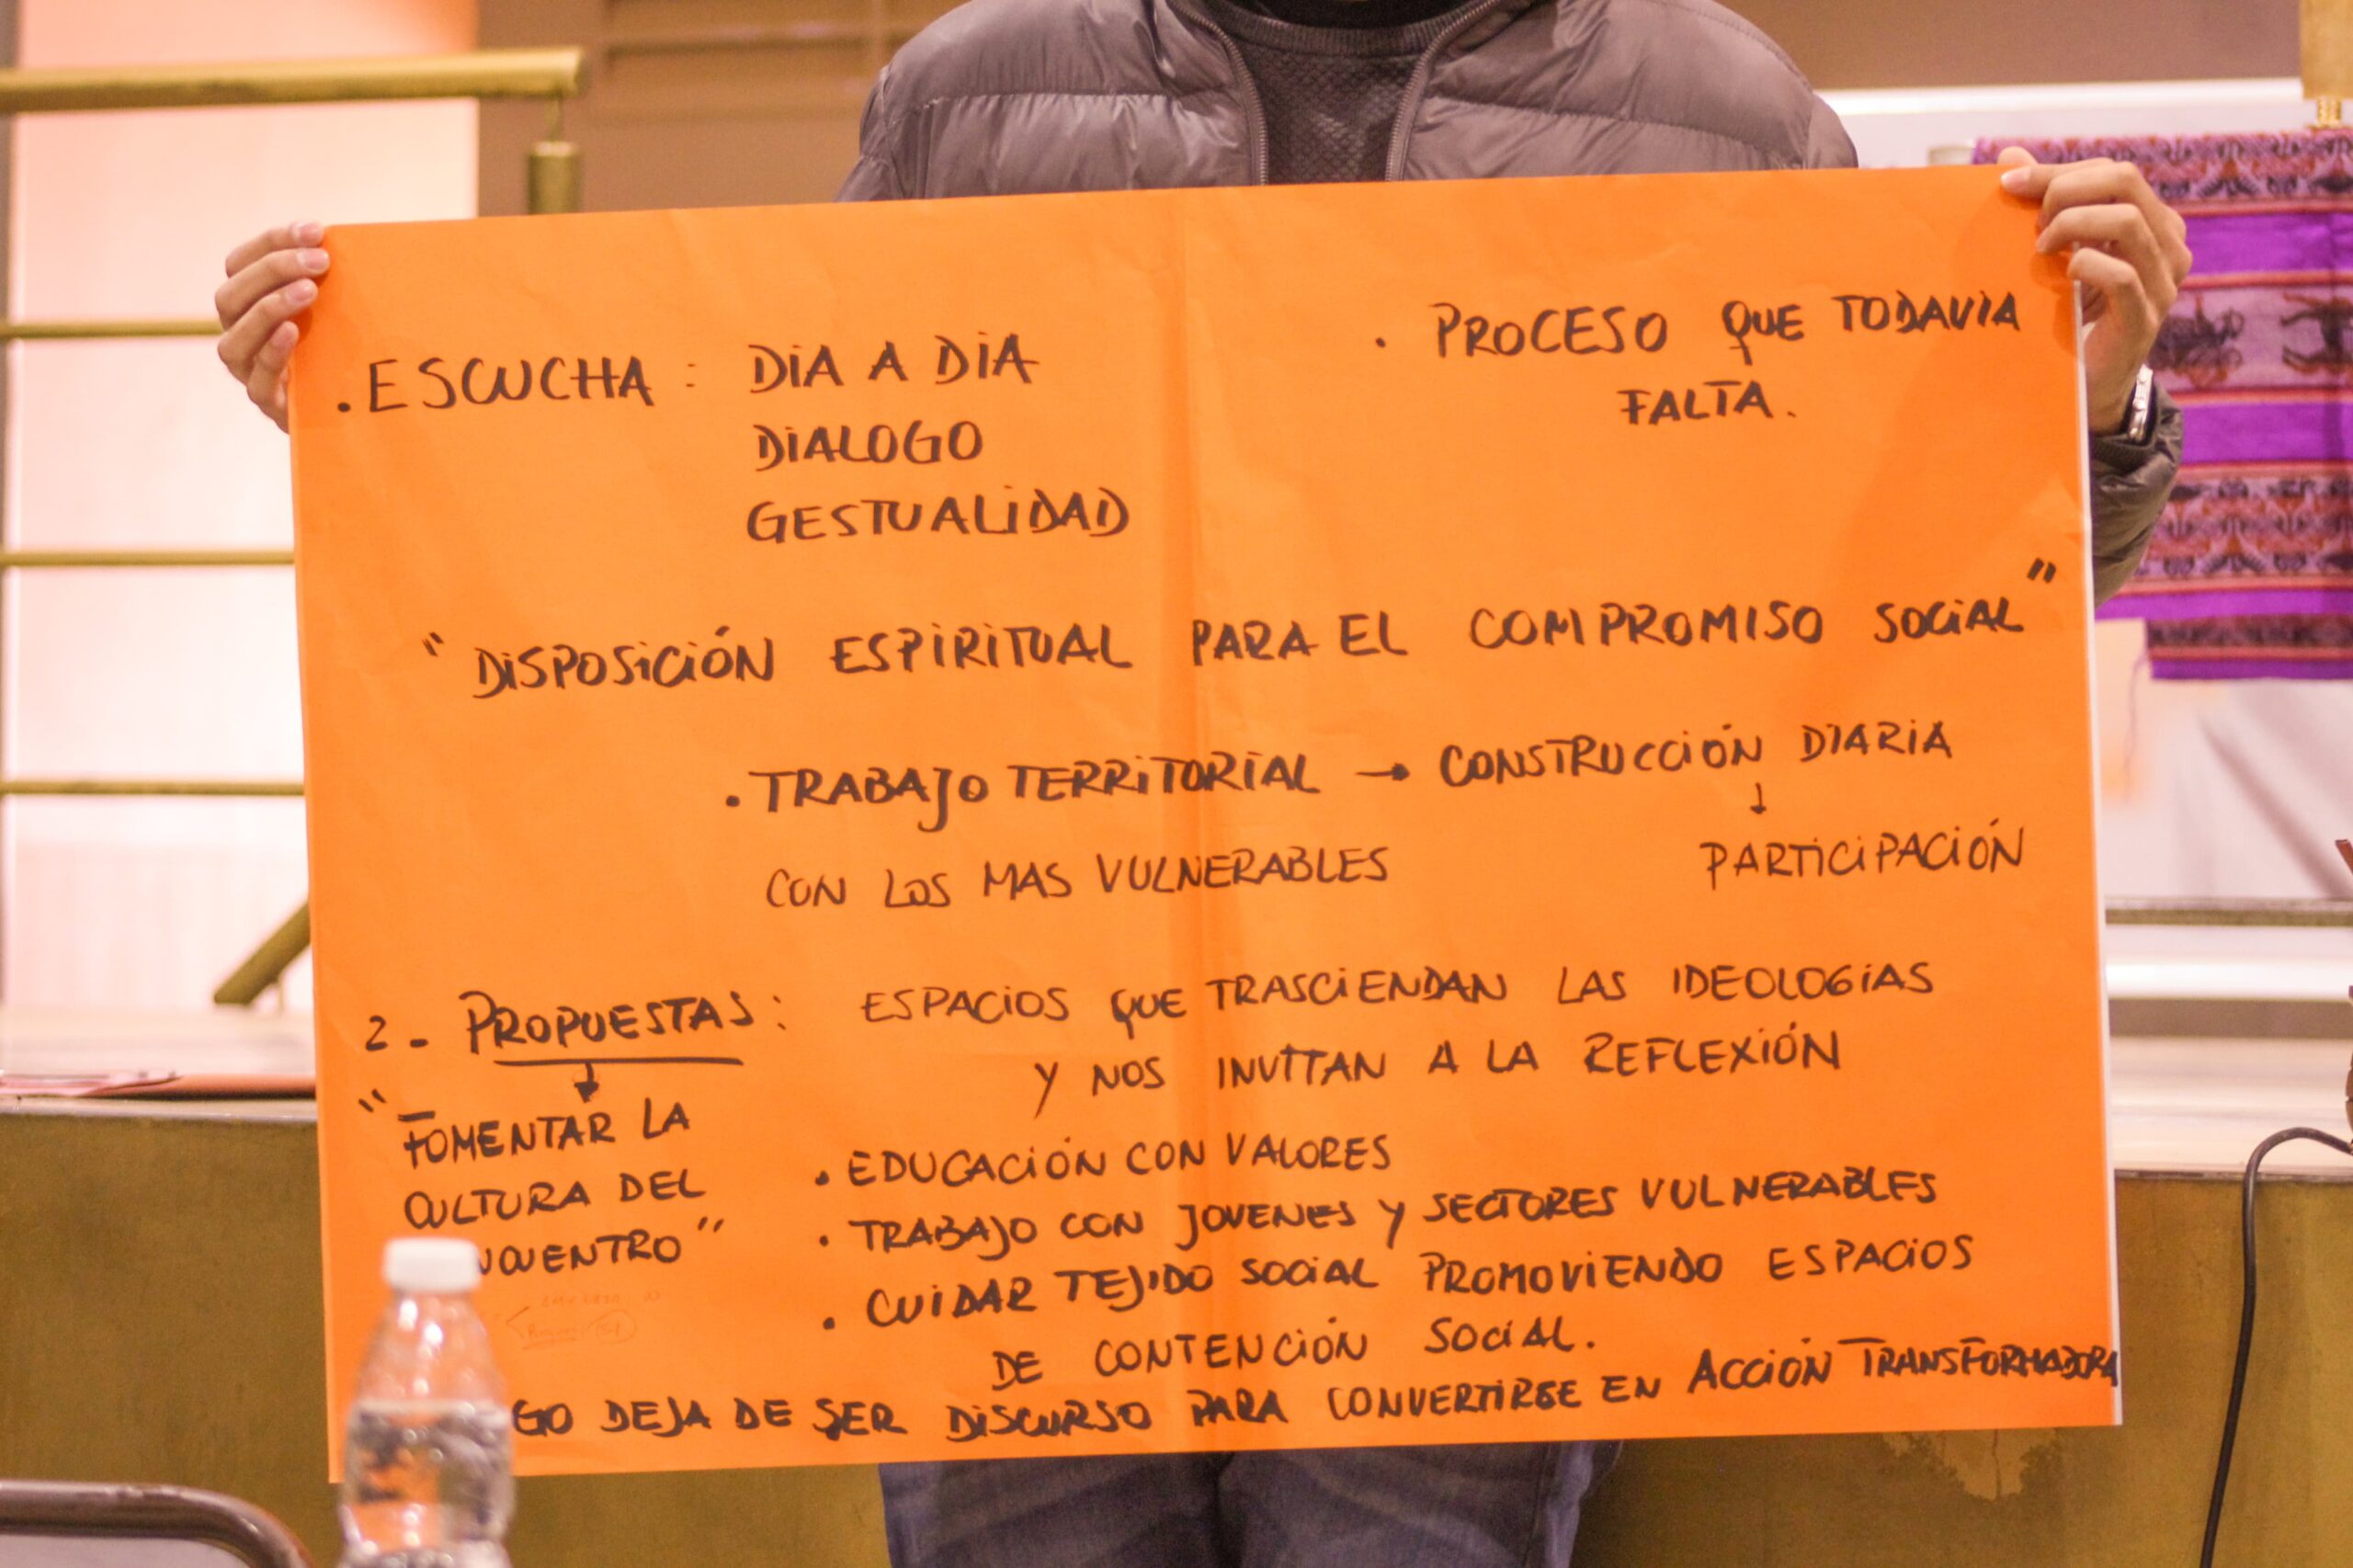 . ESCUCHA : DIA A DIA
DIALOGO
GESTUALIDAD
. PROCESO QUE TODAVIA
FALTA.
" DISPOSICIÓN ESPIRITUAL PARA EL COMPROMISO SOCIAL "
. TRABAJO TERRITORIAL → CONSTRUCCIÓN DIARIA
↓
CON LOS MAS VULNERABLES
PARTICIPACIÓN
2 - PROPUESTAS : ESPACIOS QUE TRASCIENDAN LAS IDEOLOGÍAS
Y NOS INVITAN A LA REFLEXIÓN
↓
" FOMENTAR LA
CULTURA DEL
NCUENTRO "
. EDUCACIÓN CON VALORES
. TRABAJO CON JOVENES Y SECTORES VULNERABLES
. CUIDAR TEJIDO SOCIAL PROMOVIENDO ESPACIOS
DE CONTENCIÓN SOCIAL.
GO DEJA DE SER DISCURSO PARA CONVERTIRSE EN ACCIÓN TRANSFORMADORA